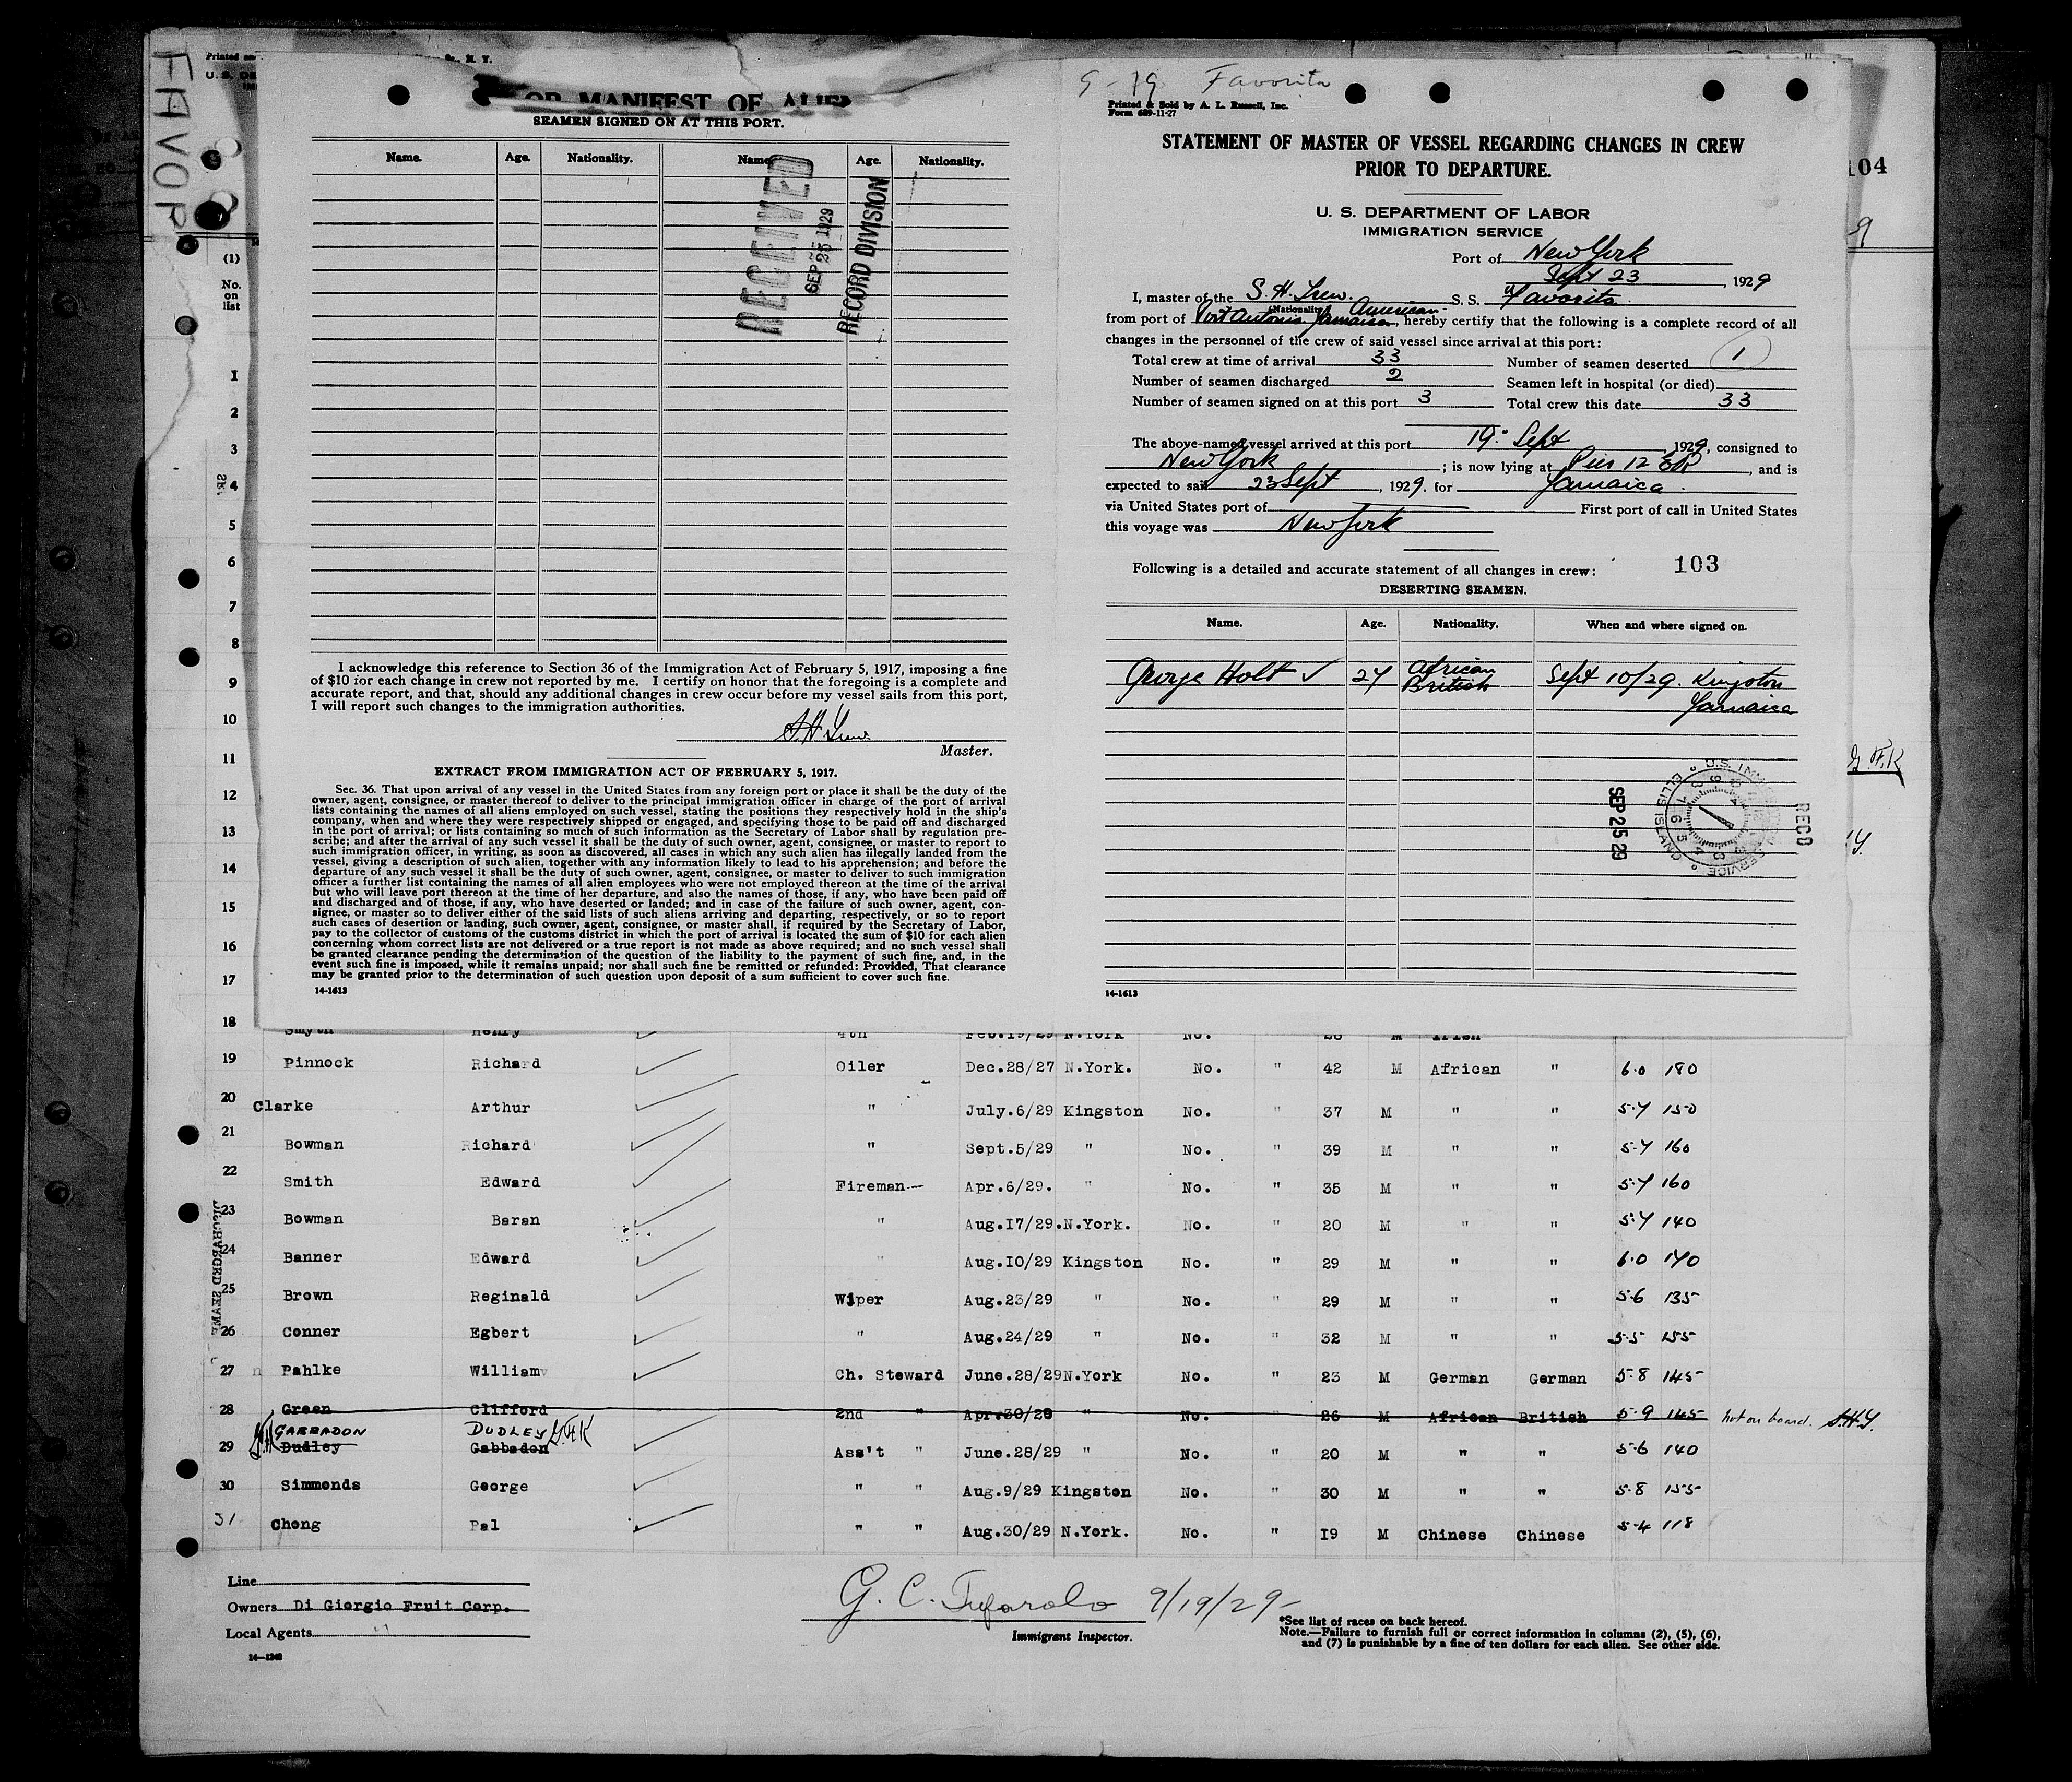 FAVOP
Printed
U. S. DE
N. Y.
OR MANIFEST OF ALIEN
SEAMEN SIGNED ON AT THIS PORT.
Name. Age. Nationality. Name. Age. Nationality.
RECEIVED
SEP 25 1929
RECORD DIVISION
I acknowledge this reference to Section 36 of the Immigration Act of February 5, 1917, imposing a fine
of $10 for each change in crew not reported by me. I certify on honor that the foregoing is a complete and
accurate report, and that, should any additional changes in crew occur before my vessel sails from this port,
I will report such changes to the immigration authorities.
Master.
EXTRACT FROM IMMIGRATION ACT OF FEBRUARY 5, 1917.
Sec. 36. That upon arrival of any vessel in the United States from any foreign port or place it shall be the duty of the
owner, agent, consignee, or master thereof to deliver to the principal immigration officer in charge of the port of arrival
lists containing the names of all aliens employed on such vessel, stating the positions they respectively hold in the ship's
company, when and where they were respectively shipped or engaged, and specifying those to be paid off and discharged
in the port of arrival; or lists containing so much of such information as the Secretary of Labor shall by regulation pre-
scribe; and after the arrival of any such vessel it shall be the duty of such owner, agent, consignee, or master to report to
such immigration officer, in writing, as soon as discovered, all cases in which any such alien has illegally landed from the
vessel, giving a description of such alien, together with any information likely to lead to his apprehension; and before the
departure of any such vessel it shall be the duty of such owner, agent, consignee, or master to deliver to such immigration
officer a further list containing the names of all alien employees who were not employed thereon at the time of the arrival
but who will leave port thereon at the time of her departure, and also the names of those, if any, who have been paid off
and discharged and of those, if any, who have deserted or landed; and in case of the failure of such owner, agent, con-
signee, or master so to deliver either of the said lists of such aliens arriving and departing, respectively, or so to report
such cases of desertion or landing, such owner, agent, consignee, or master shall, if required by the Secretary of Labor,
pay to the collector of customs of the customs district in which the port of arrival is located the sum of $10 for each alien
concerning whom correct lists are not delivered or a true report is not made as above required; and no such vessel shall
be granted clearance pending the determination of the question of the liability to the payment of such fine, and, in the
event such fine is imposed, while it remains unpaid; nor shall such fine be remitted or refunded: Provided, That clearance
may be granted prior to the determination of such question upon deposit of a sum sufficient to cover such fine.
14-1613
9-19 Favorita
Printed & Sold by A. L. Russell, Inc.
Form 689-11-27
STATEMENT OF MASTER OF VESSEL REGARDING CHANGES IN CREW
PRIOR TO DEPARTURE.
U. S. DEPARTMENT OF LABOR
IMMIGRATION SERVICE
Port of New York
Sept 23, 1929
I, master of the S. H. S. S. Favorita
(Nationality) American
from port of Port Antonio Jamaica, hereby certify that the following is a complete record of all
changes in the personnel of the crew of said vessel since arrival at this port:
Total crew at time of arrival 33 Number of seamen deserted 1
Number of seamen discharged 2 Seamen left in hospital (or died)
Number of seamen signed on at this port 3 Total crew this date 33
The above-named vessel arrived at this port 19 Sept, 1929, consigned to
New York; is now lying at Pier 12 ER, and is
expected to sail 23 Sept, 1929. for Jamaica.
via United States port of First port of call in United States
this voyage was New York
Following is a detailed and accurate statement of all changes in crew: 103
DESERTING SEAMEN.
Name. Age. Nationality. When and where signed on.
George Holt 27 African British Sept 10/29. Kingston
Jamaica
SEP 25 29
RECD
14-1613
104
(1)
No.
on
list
1
2
3
4
5
6
7
8
9
10
11
12
13
14
15
16
17
18 Smyth Henry 4th Feb.19/29 N.York No. 28 M Irish
19 Pinnock Richard Oiler Dec.28/27 N.York. No. " 42 M African " 6.0 180
20 Clarke Arthur " July.6/29 Kingston No. " 37 M " " 5.7 150
21 Bowman Richard " Sept.5/29 " No. " 39 M " " 5.7 160
22 Smith Edward Fireman Apr.6/29. " No. " 35 M " " 5.7 160
23 Bowman Baran " Aug.17/29.N.York. No. " 20 M " " 5.7 140
24 Banner Edward " Aug.10/29 Kingston No. " 29 M " " 6.0 170
25 Brown Reginald Wiper Aug.23/29 " No. " 29 M " " 5.6 135
26 Conner Egbert " Aug.24/29 " No. " 32 M " " 5.5 155
27 Pahlke William Ch. Steward June.28/29 N.York No. " 23 M German German 5.8 145
28 Green Clifford 2nd " Apr.30/29 " No. " 26 M African British 5.9 145 not on board. S.H.Y.
GABBADON DUDLEY G.F.K
29 Dudley Gabbadon Ass't " June.28/29 " No. " 20 M " " 5.6 140
30 Simmonds George " " Aug.9/29 Kingston No. " 30 M " " 5.8 155
31. Chong Pal " " Aug.30/29 N.York. No. " 19 M Chinese Chinese 5.4 118
DISCHARGED SEAMEN
Line
Owners Di Giorgio Fruit Corp.
Local Agents "
14-1240
G. C. Tufarolo 9/19/29
Immigrant Inspector.
*See list of races on back hereof.
Note.—Failure to furnish full or correct information in columns (2), (5), (6),
and (7) is punishable by a fine of ten dollars for each alien. See other side.